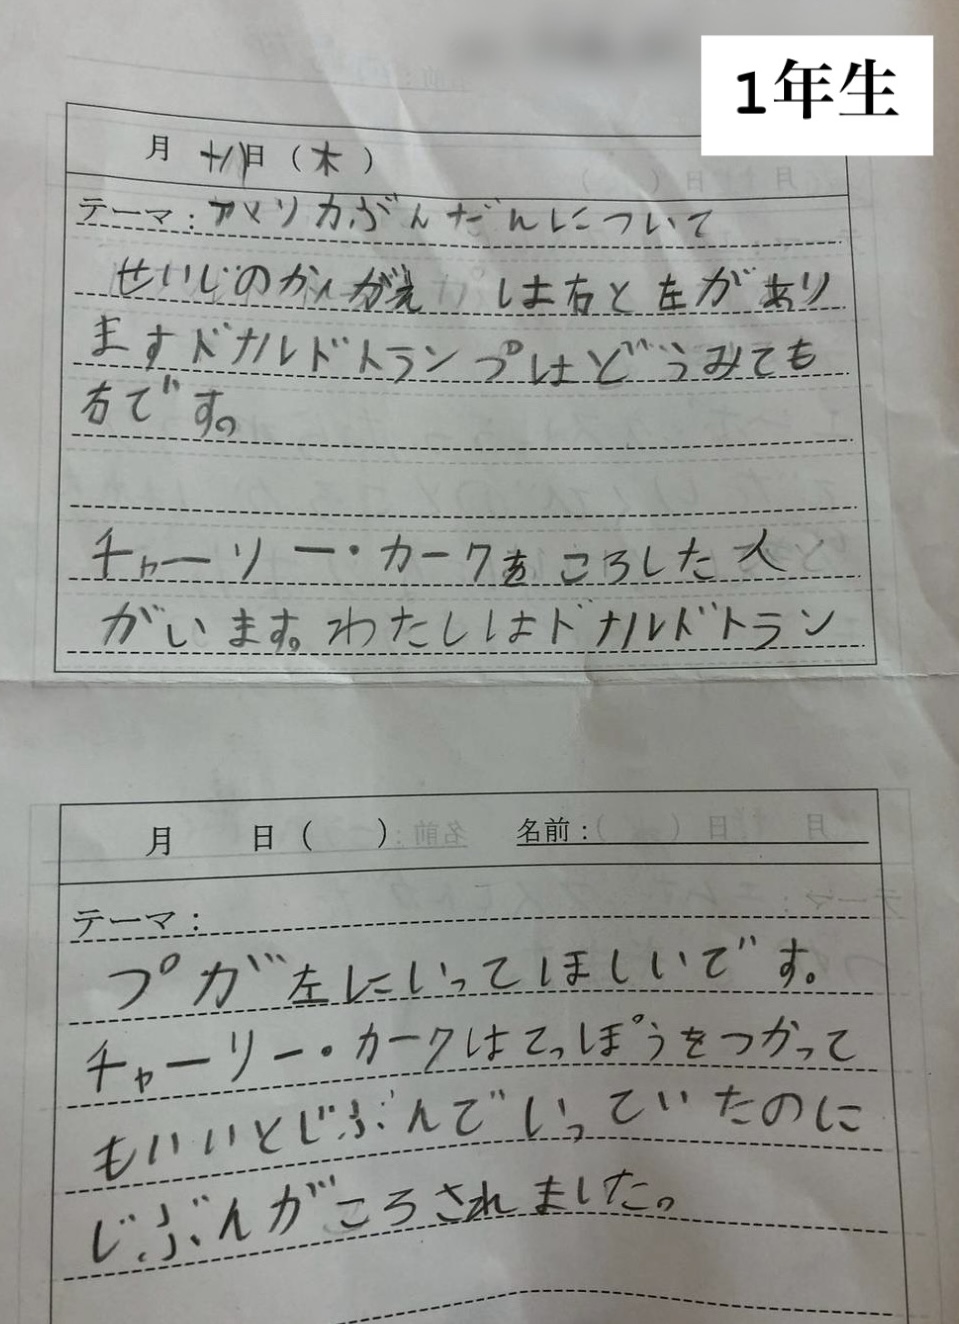 1年生
月 十八日（木）
テーマ：アメリカぶんだんについて
せいじのかんがえ は右と左があり
ますドナルドトランプはどうみても
右です。
チャーリー・カークをころした人
がいます。わたしはドナルドトラン
月 日（ ） 名前：
テーマ：
プが左にいってほしいです。
チャーリー・カークはてっぽうをつかって
もいいとじぶんでいっていたのに
じぶんがころされました。